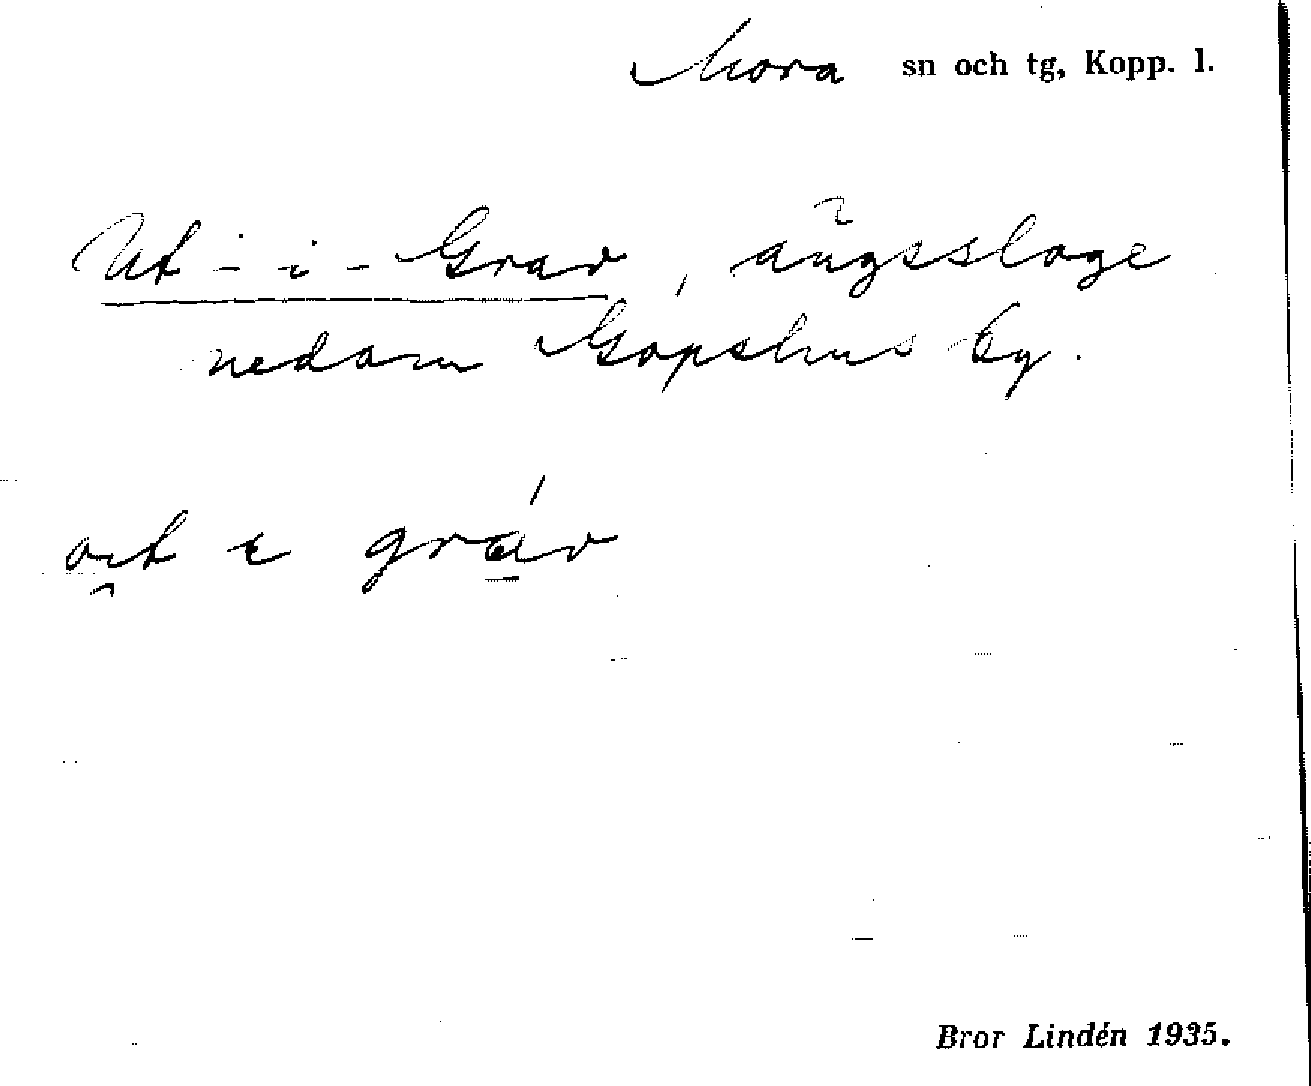 Mora sn och tg, Kopp. l.
Ut-i-Grav, ängssloge
nedom Gopshus by.
out e gráv
Bror Lindén 1935.